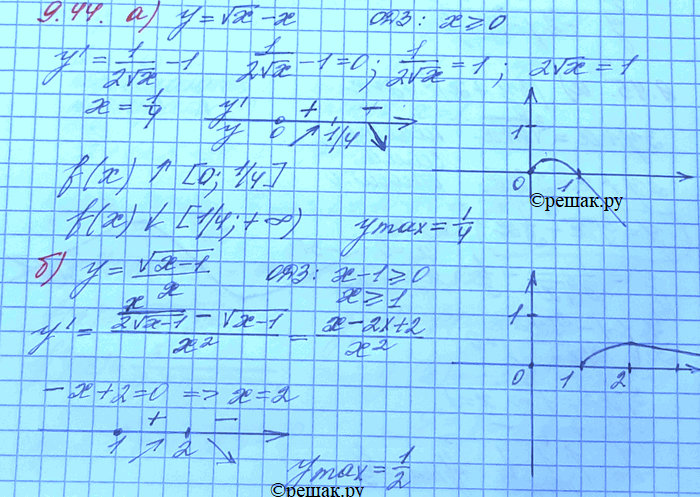 9.44. а) y = √x - x   ОДЗ: x ≥ 0
y' = 1/(2√x) - 1   1/(2√x) - 1 = 0; 1/(2√x) = 1; 2√x = 1
x = 1/4   y' + -
y 0 ↗ 1/4 ↘
1
0 1
©решак.ру
f(x) ↑ [0; 1/4]
f(x) ↓ [1/4; +∞)   ymax = 1/4
б) y = √(x-1)/x   ОДЗ: x-1 ≥ 0
x ≥ 1
y' = (x/(2√(x-1)) - √(x-1))/x² = (x-2x+2)/x²
1
0 1 2
-x+2=0 => x=2
+ -
1 ↗ 2 ↘
ymax = 1/2
©решак.ру